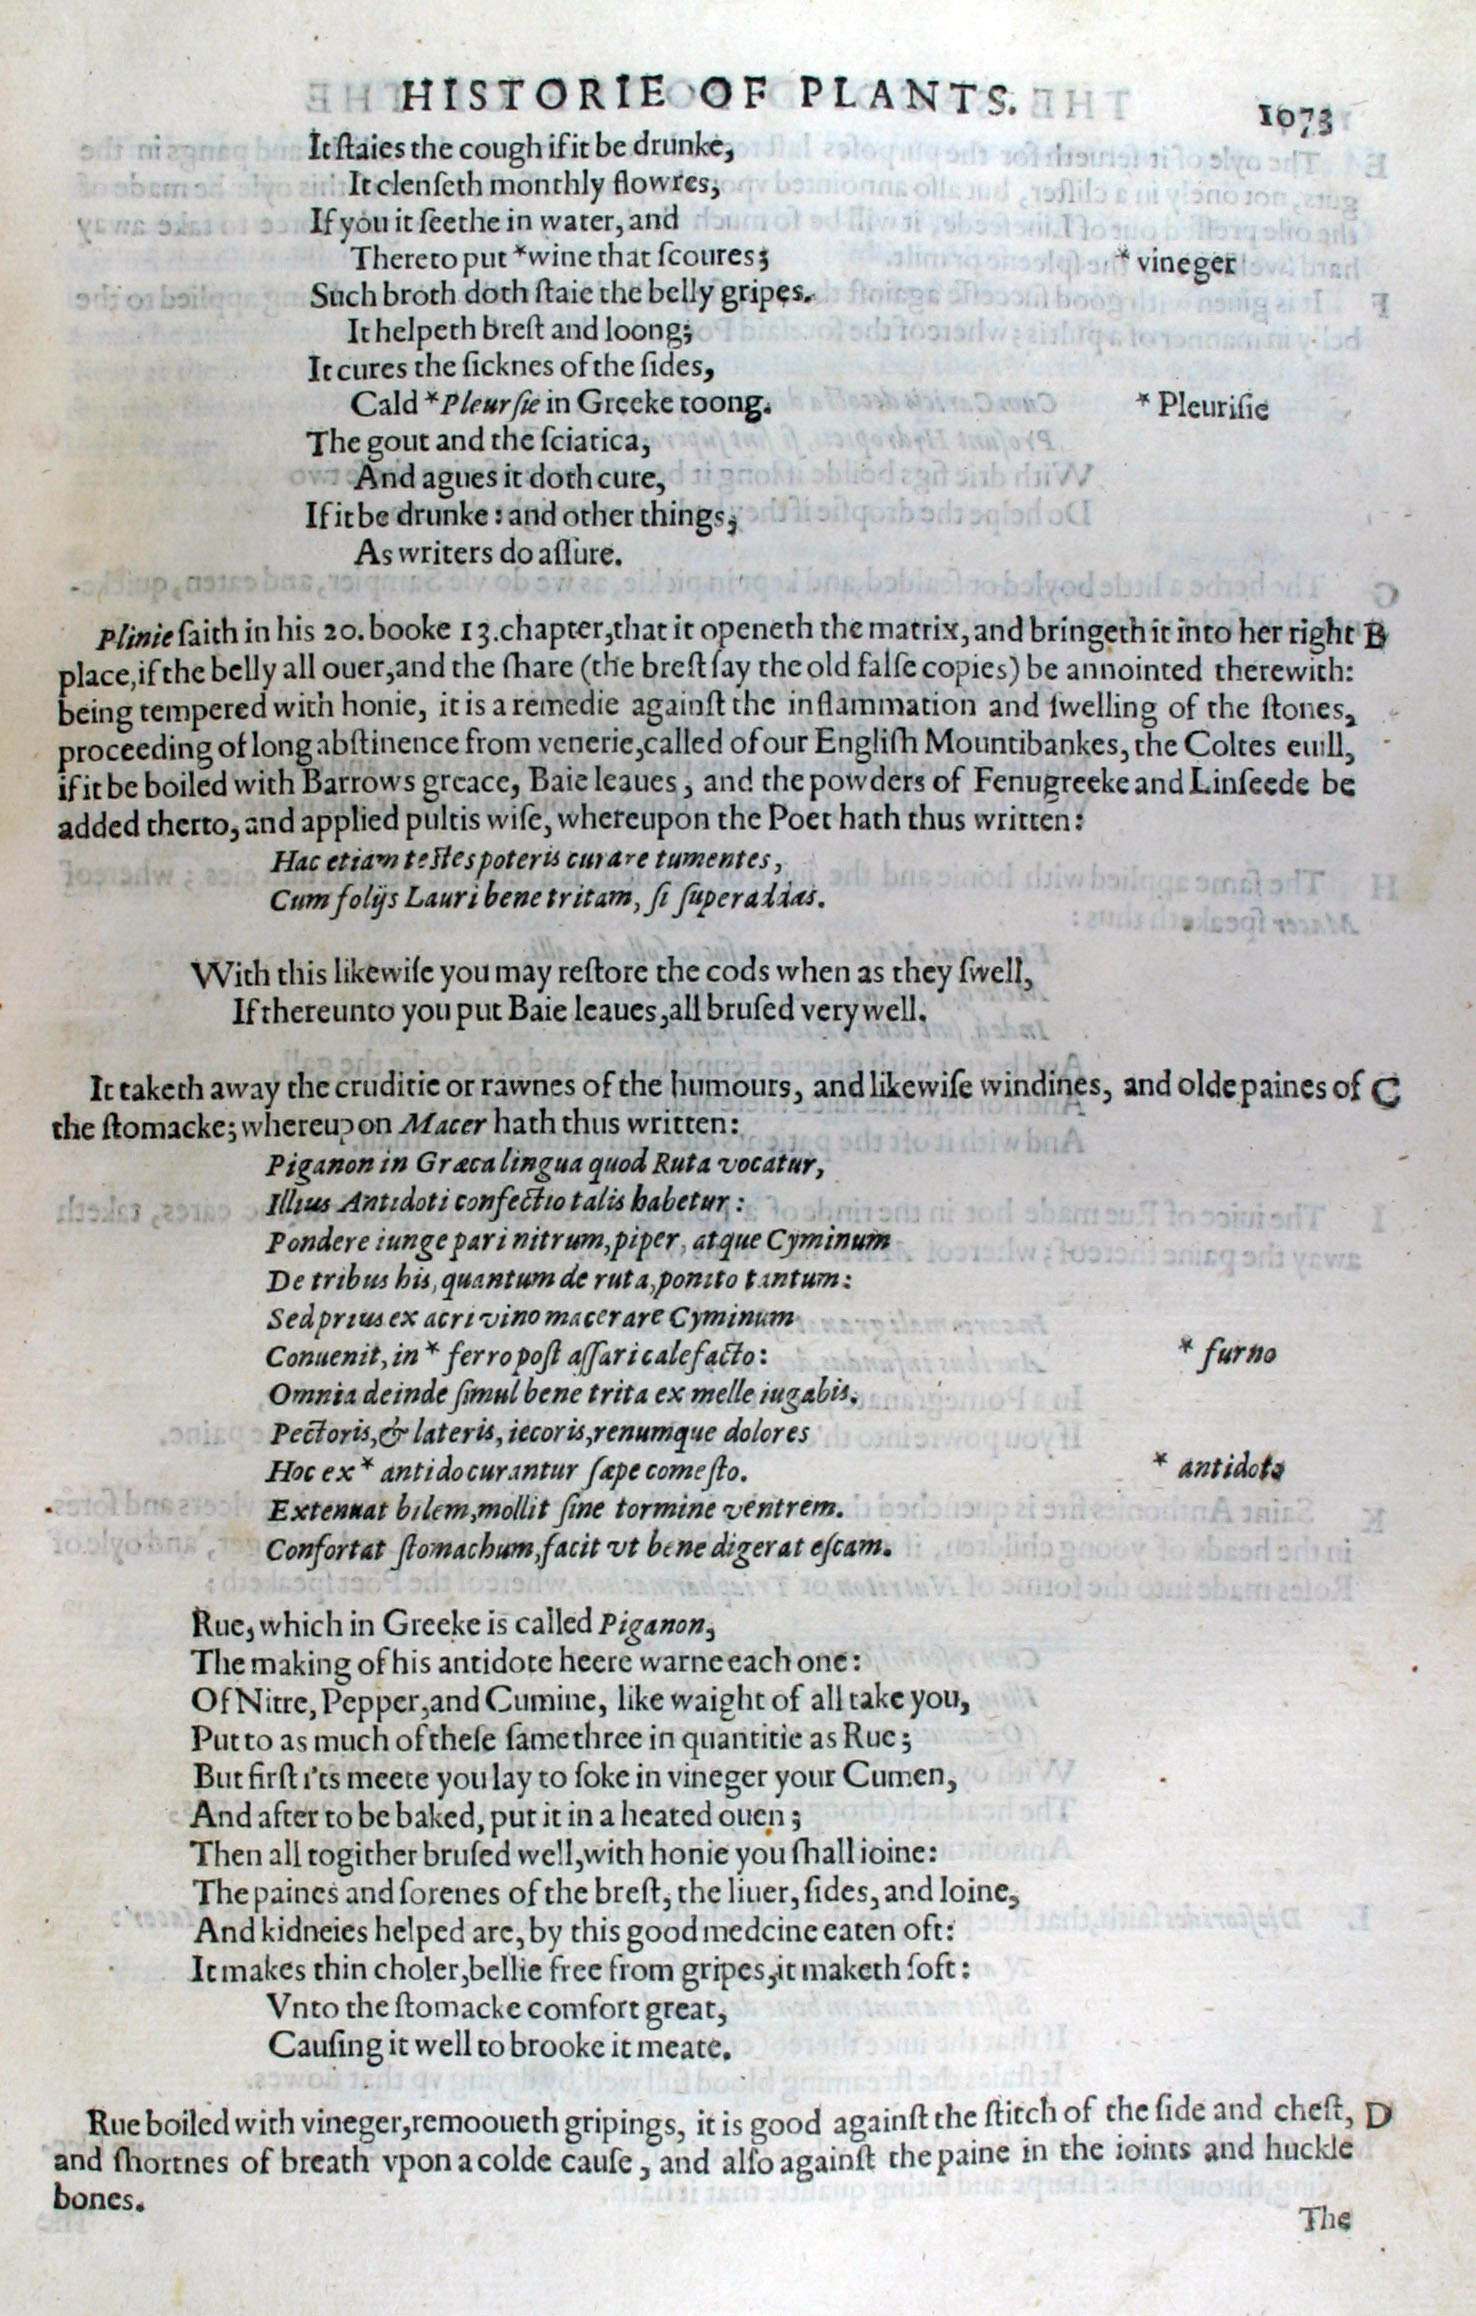 HISTORIE OF PLANTS. 1073
It ſtaies the cough if it be drunke,
It clenſeth monthly flowres,
If you it ſeethe in water, and
Thereto put *wine that ſcoures; * vineger
Such broth doth ſtaie the belly gripes.
It helpeth breſt and loong;
It cures the ſicknes of the ſides,
Cald *Pleurſie in Greeke toong. * Pleuriſie
The gout and the ſciatica,
And agues it doth cure,
If it be drunke: and other things,
As writers do aſſure.
Plinie ſaith in his 20. booke 13. chapter, that it openeth the matrix, and bringeth it into her right B
place, if the belly all ouer, and the ſhare (the breſt ſay the old falſe copies) be annointed therewith:
being tempered with honie, it is a remedie againſt the inflammation and ſwelling of the ſtones,
proceeding of long abſtinence from venerie, called of our Engliſh Mountibankes, the Coltes euill,
if it be boiled with Barrows greace, Baie leaues, and the powders of Fenugreeke and Linſeede be
added therto, and applied pultis wiſe, whereupon the Poet hath thus written:
Hac etiam teſtes poteris curare tumentes,
Cum folijs Lauri bene tritam, ſi ſuperaddas.
With this likewiſe you may reſtore the cods when as they ſwell,
If thereunto you put Baie leaues, all bruſed very well.
It taketh away the cruditie or rawnes of the humours, and likewiſe windines, and olde paines of C
the ſtomacke; whereupon Macer hath thus written:
Piganon in Græca lingua quod Ruta vocatur,
Illius Antidoti confectio talis habetur:
Pondere iunge pari nitrum, piper, atque Cyminum
De tribus his, quantum de ruta, ponito tantum:
Sed prius ex acri vino macerare Cyminum
Conuenit, in * ferro poſt aſſari calefacto: * furno
Omnia deinde ſimul bene trita ex melle iugabis.
Pectoris, & lateris, iecoris, renumque dolores
Hoc ex * antido curantur ſæpe comeſto. * antidoto
Extenuat bilem, mollit ſine tormine ventrem.
Confortat ſtomachum, facit vt bene digerat eſcam.
Rue, which in Greeke is called Piganon,
The making of his antidote heere warne each one:
Of Nitre, Pepper, and Cumine, like waight of all take you,
Put to as much of theſe ſame three in quantitie as Rue;
But firſt i'ts meete you lay to ſoke in vineger your Cumen,
And after to be baked, put it in a heated ouen;
Then all togither bruſed well, with honie you ſhall ioine:
The paines and ſorenes of the breſt, the liuer, ſides, and loine,
And kidneies helped are, by this good medcine eaten oft:
It makes thin choler, bellie free from gripes, it maketh ſoft:
Vnto the ſtomacke comfort great,
Cauſing it well to brooke it meate.
Rue boiled with vineger, remooueth gripings, it is good againſt the ſtitch of the ſide and cheſt, D
and ſhortnes of breath vpon a colde cauſe, and alſo againſt the paine in the ioints and huckle
bones.
The